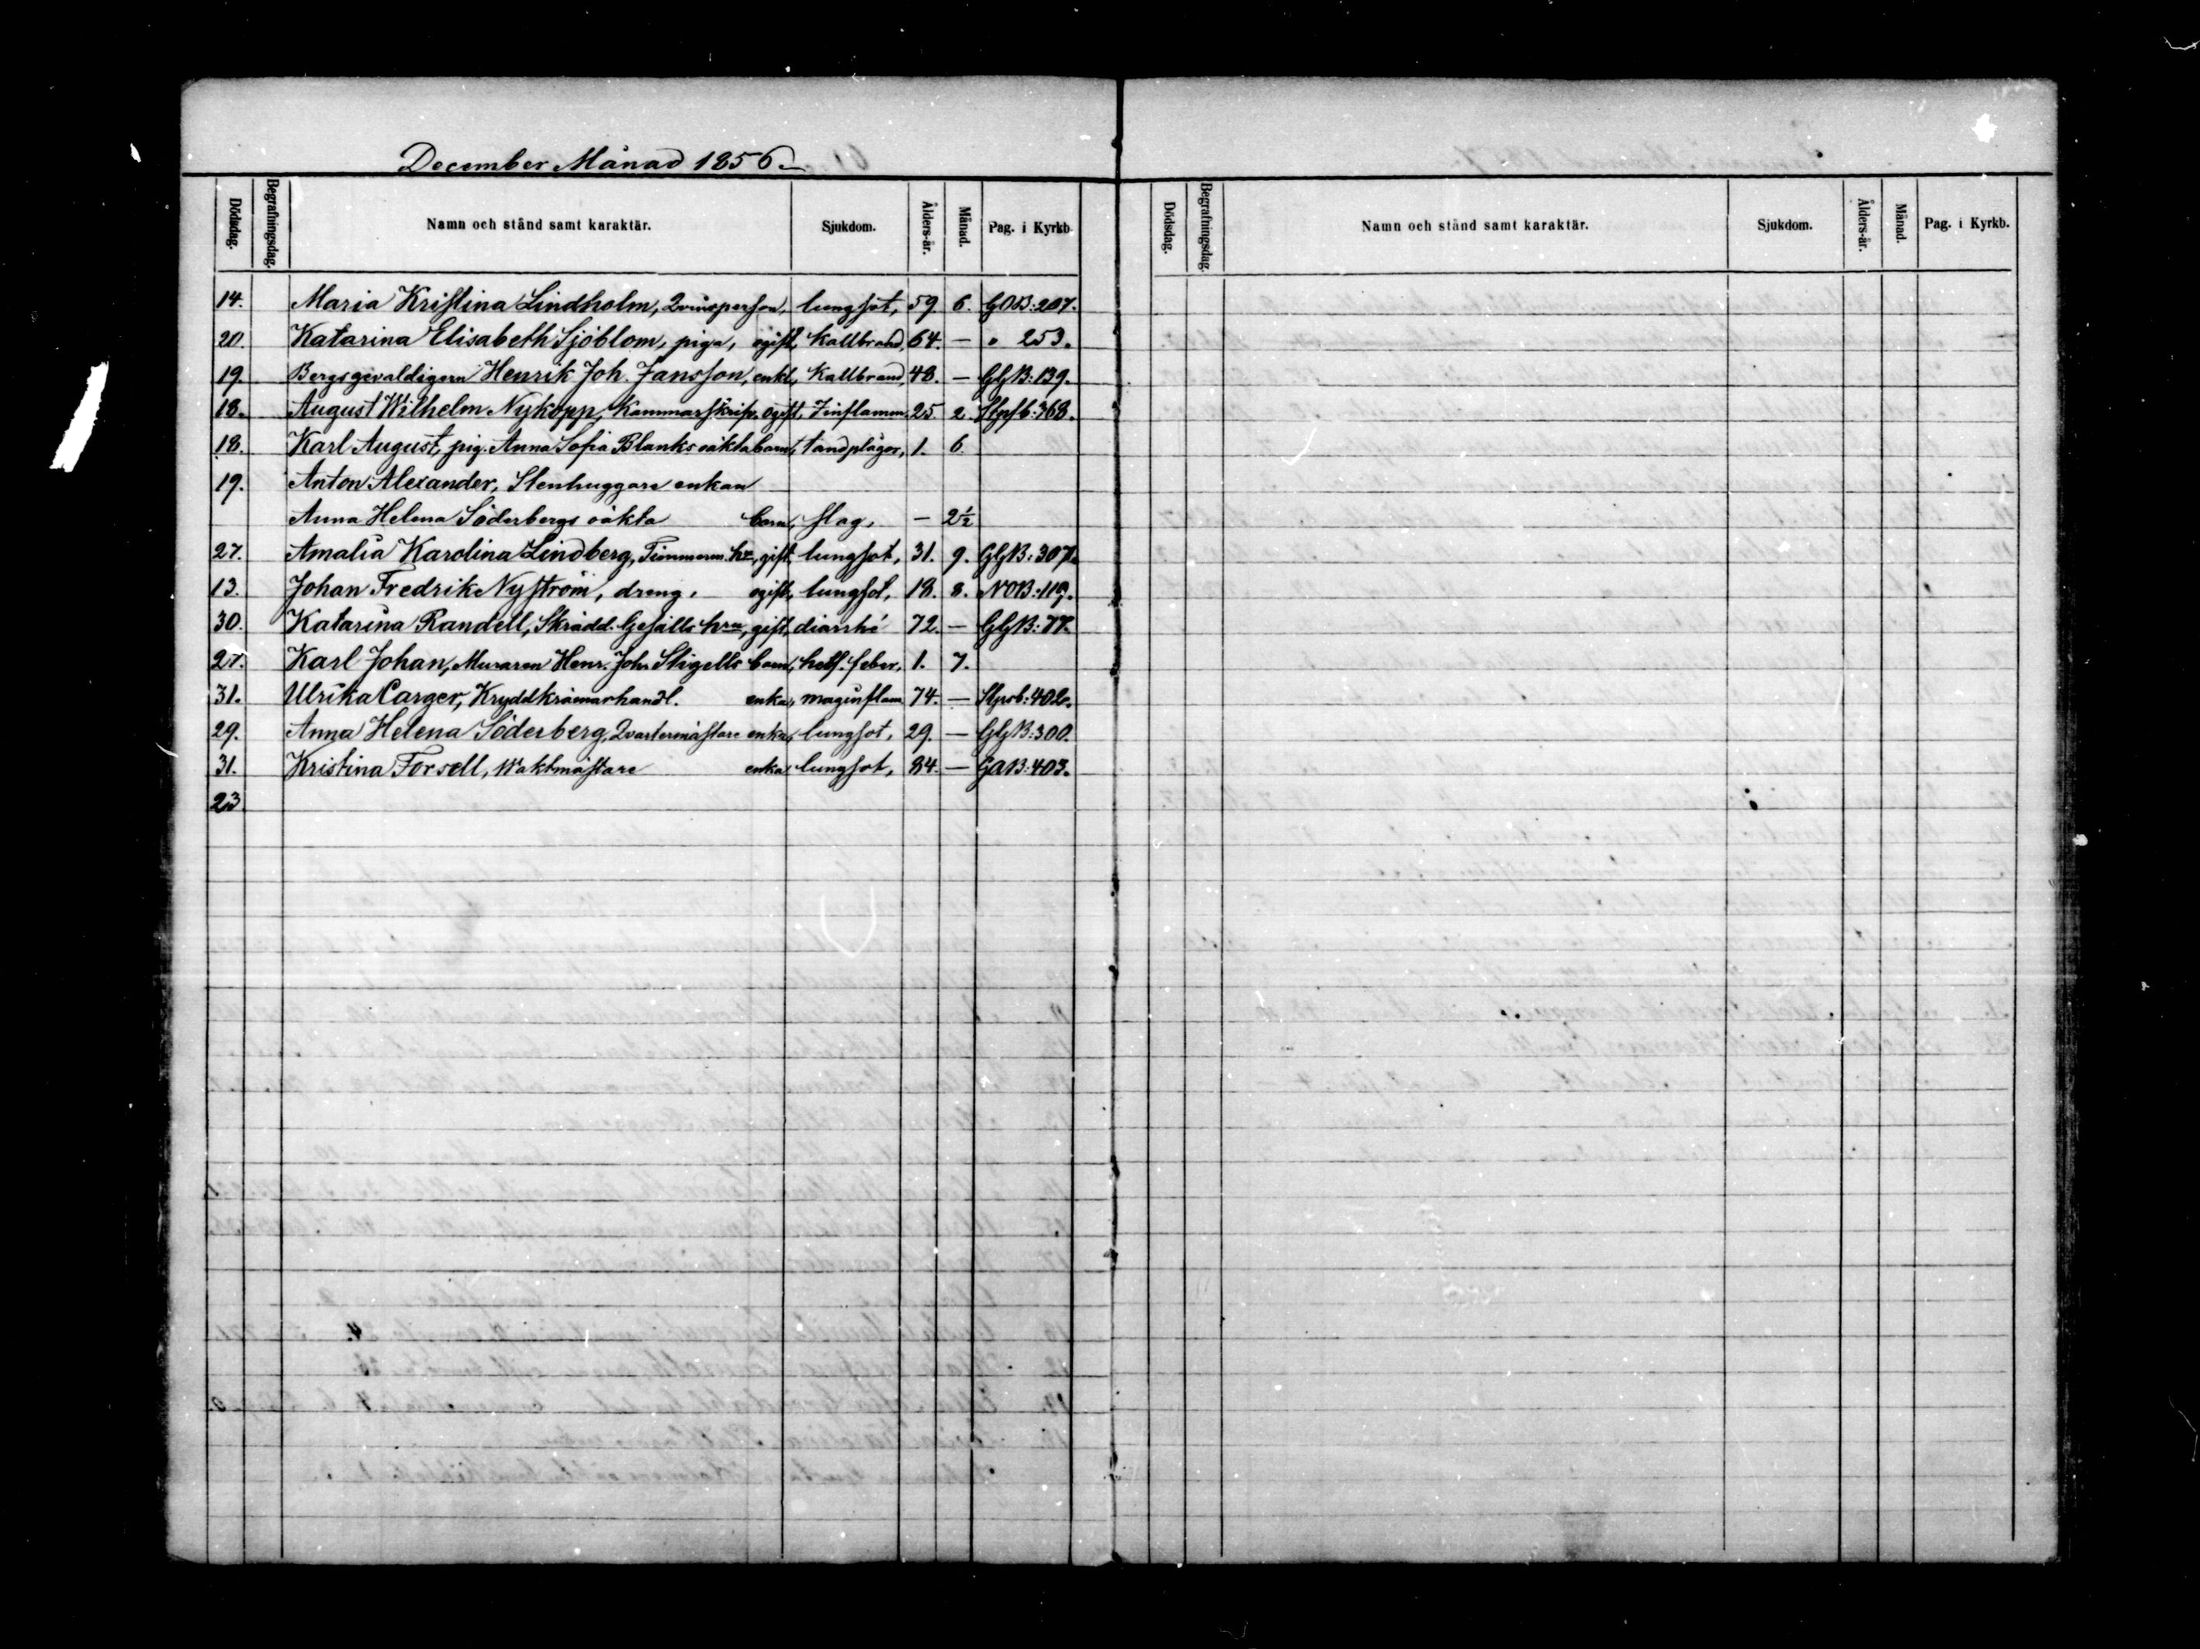 December Månad 1856.
Dödsdag. Begrafningsdag. Namn och stånd samt karaktär. Sjukdom. Ålders-år. Månad. Pag. i Kyrkb.
14. Maria Kristina Lindholm, Qvinsperson, lungsot, 59. 6. GOB: 207.
20. Katarina Elisabeth Sjöblom, piga, ogift, Kallbrand, 64. — " 253.
19. Bergsgevaldigern Henrik Joh. Jansson, enkl, Kallbrand 48. — GGB: 139.
18. August Wilhelm Nykopp, Kammarskrifv. ogift, Inflamm. 25. 2. 368.
18. Karl August, pig. Anna Sofia Blanks oäkta barn, tandplågor, 1. 6.
19. Anton Alexander, Stenhuggare enkan
Anna Helena Söderbergs oäkta barn, slag, — 2½
27. Amalia Karolina Lindberg, Timmerm. hu, gift, lungsot, 31. 9. GGB: 307.
13. Johan Fredrik Nyström, dreng, ogift, lungsot, 18. 8. NOB: 119.
30. Katarina Randell, Skrädd. Gesälls hru, gift, diarrhé 72. — GGB: 77.
27. Karl Johan, Muraren Henr. Joh. Stigells barn, hetf. feber, 1. 7.
31. Ulrika Carger, Kryddkrämarhandl. enka, maginflam 74. — 402.
29. Anna Helena Söderberg, Qvartermästare enka, lungsot, 29. — GGB: 300.
31. Kristina Forsell, Waktmästare enka lungsot, 84. — GAB: 403.
23
Dödsdag. Begrafningsdag. Namn och stånd samt karaktär. Sjukdom. Ålders-år. Månad. Pag. i Kyrkb.